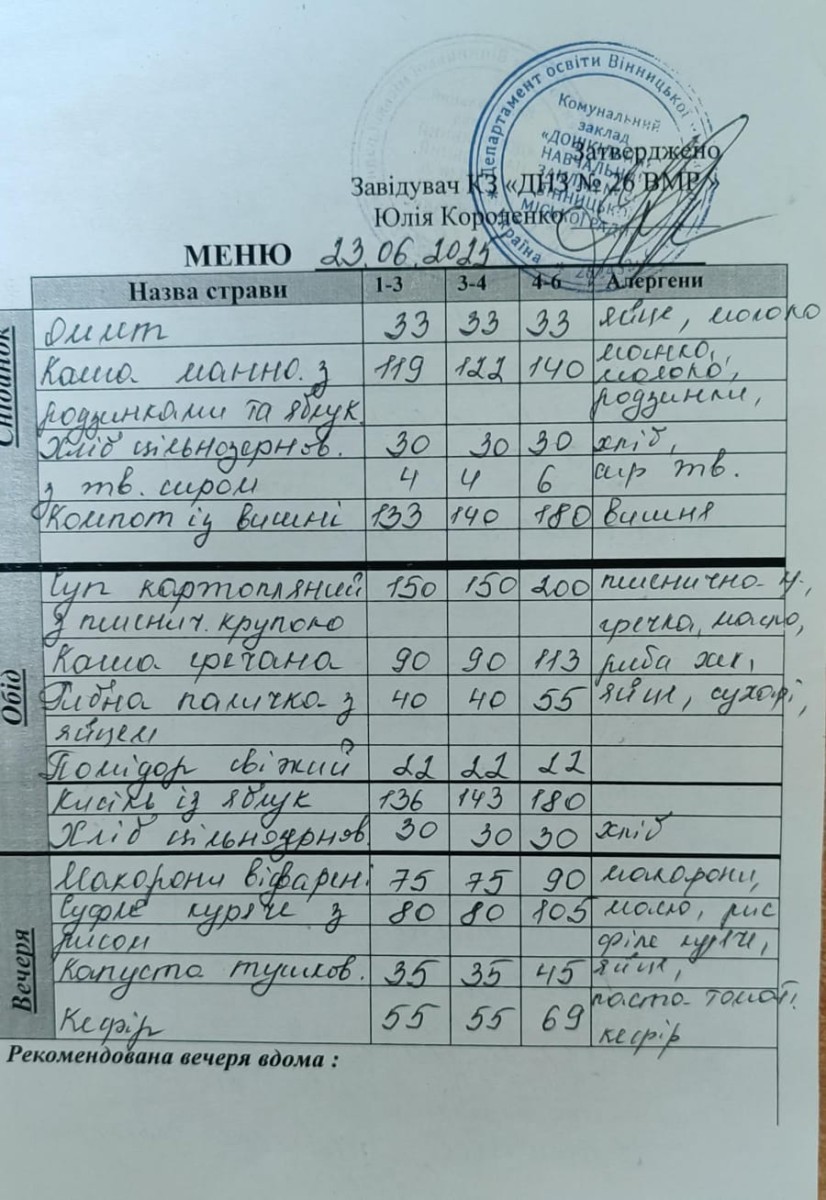 Департамент освіти Вінницької
Комунальний
заклад
«ДОШКІЛЬНИЙ
НАВЧАЛЬНИЙ
ВІННИЦЬКОЇ
МІСЬКОЇ РАДИ
Україна
Затверджено
Завідувач КЗ «ДНЗ № 26 ВМР»
Юлія Короденко
МЕНЮ 23.06.2025
Назва страви 1-3 3-4 4-6 Алергени
Сніданок
Омлет 33 33 33 яйце, молоко
Каша манна з 119 122 140 манка, молоко,
родзинками та яблук. родзинки,
Хліб цільнозернов. 30 30 30 хліб,
з тв. сиром 4 4 6 сир тв.
Компот із вишні 133 140 180 вишня
Обід
Суп картопляний 150 150 200 пшенична к,
з пшенич. крупою гречка, масло,
Каша гречана 90 90 113 риба хек,
Рибна паличка з 40 40 55 яйце, сухарі,
яйцем
Помідор свіжий 22 22 22
Кисіль із яблук 136 143 180
Хліб цільнозернов. 30 30 30 хліб
Вечеря
Макарони відварені 75 75 90 макарони,
Суфле куряче з 80 80 105 масло, рис
рисом філе куряче,
Капуста тушков. 35 35 45 яйце,
Кефір 55 55 69 паста томат. кефір
Рекомендована вечеря вдома :